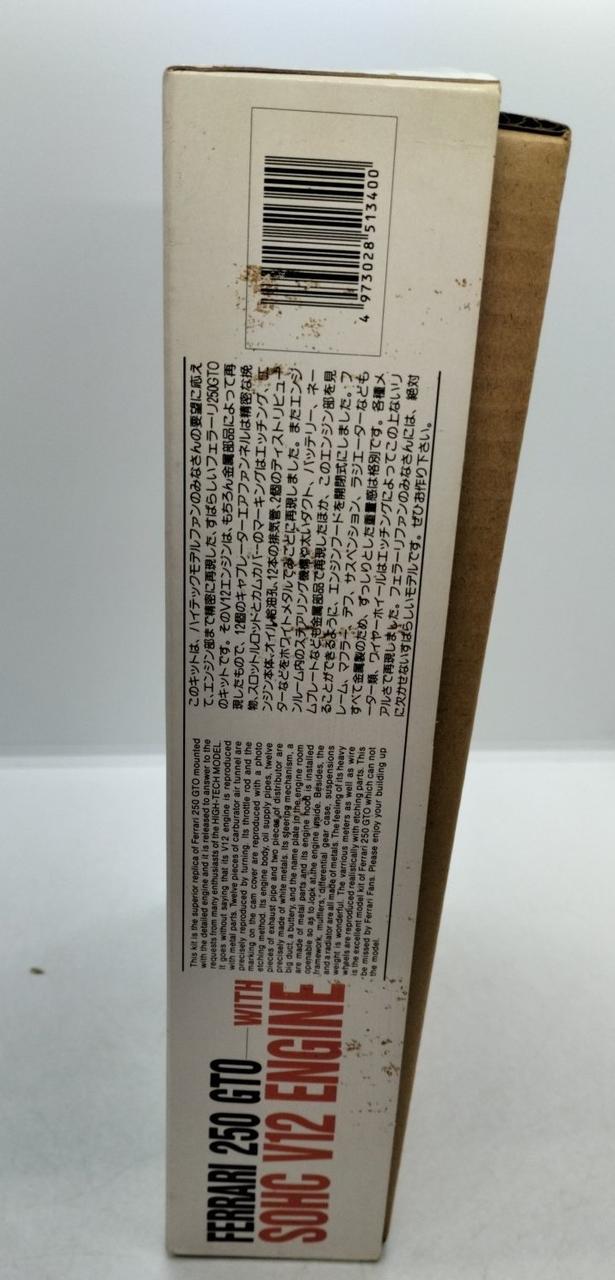 FERRARI 250 GTO WITH
SOHC V12 ENGINE
This kit is the superior replica of Ferrari 250 GTO mounted
with the detailed engine and it is released to answer to the
requests from many enthusiasts of the HIGH-TECH MODEL.
It goes without saying that its V12 engine is reproduced
with metal parts. Twelve pieces of carburator air tunnel are
precisely reproduced by turning. Its throttle rod and the
marking on the cam cover are reproduced with a photo
etching method. Its engine body, oil supply pipes, twelve
pieces of exhaust pipe and two pieces of distributor are
precisely made of white metals. Its steering mechanism, a
big duct, a buttery, and the name plate in the engine room
are made of metal parts and its engine hood is installed
openable so as to look at the engine inside. Besides, the
framework, mufflers, differential gear case, suspensions
and a radiator are all made of metals. The feeling of its heavy
weight is wonderful. The varrious meters as well as wire
wheels are reproduced realistically with etching parts. This
is the excellent model kit of Ferrari 250 GTO which can not
be missed by Ferrari Fans. Please enjoy your building up
the model.
このキットは、ハイテックモデルファンのみなさんの要望に応え
て、エンジン部まで精密に再現した、すばらしいフェラーリ250GTO
のキットです。そのV12エンジンは、もちろん金属部品によって再
現したもので、12個のキャブレーターエアファンネルは精密な挽
物、スロットルロッドとカムカバーのマーキングはエッチング、エ
ンジン本体、オイル給油孔、12本の排気管、2個のディストリビュー
ターなどをホワイトメタルでみごとに再現しました。またエンジ
ンルーム内のステアリング機構や太いダクト、バッテリー、ネー
ムプレートなども金属部品で再現したほか、このエンジン部を見
ることができるように、エンジンフードを開閉式にしました。フ
レーム、マフラー、デフ、サスペンション、ラジエーターなども
すべて金属製のため、ずっしりとした重量感は格別です。各種メ
ーター類、ワイヤーホイールはエッチングによってこの上ないリ
アルさで再現しました。フェラーリファンのみなさんには、絶対
に欠かせないすばらしいモデルです。ぜひお作り下さい。
4 973028 513400